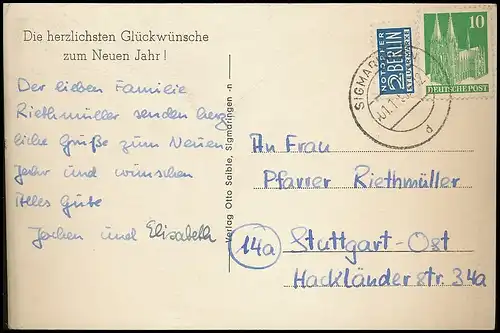 Die herzlichsten Glückwünsche
zum Neuen Jahr!
Der lieben Familie
Riethmüller senden herz
liche Grüße zum Neuen
Jahr und wünschen
Alles Gute
Jochen und Elisabeth
Verlag Otto Saible, Sigmaringen -n
NOTOPFER
2 BERLIN
STEUERMARKE
10
DEUTSCHE POST
SIGMAR
d
An Frau
Pfarrer Riethmüller
14a Stuttgart-Ost
Hackländerstr. 34a